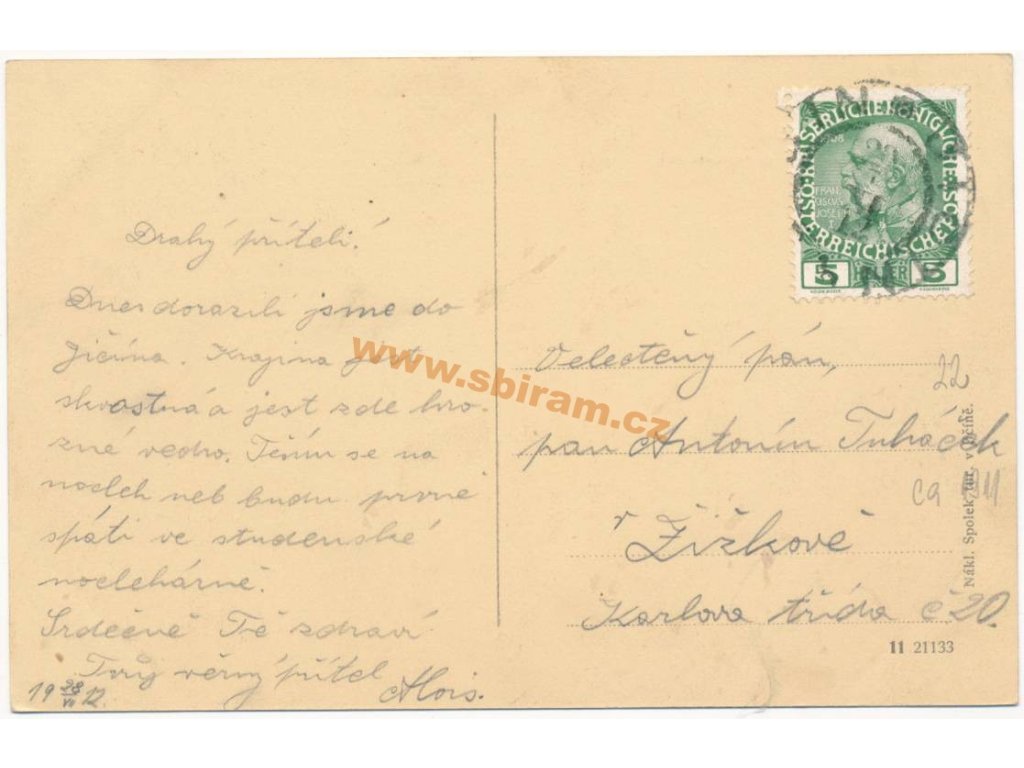 Drahý příteli!
Dnes dorazili jsme do
Jičína. Krajina jest
skvostná a jest zde hro-
zné vedro. Těším se na
nocleh neb budu prvně
spáti ve studenské
noclehárně.
Srdečně Tě zdraví
Tvůj věrný přítel
Alois.
19 28/VII 12.
ÖSTERREICHISCHE POST
KAISERLICHE KÖNIGLICHE
1908
FRAN
CISCVS
JOSEPH I
5 HELLER 5
Velectěný pán,
pan Antonín Tuháček
v Žižkově
Karlova třída č 20.
22
Nákl. Spolek tur. v Jičíně.
11 21133
www.sbiram.cz